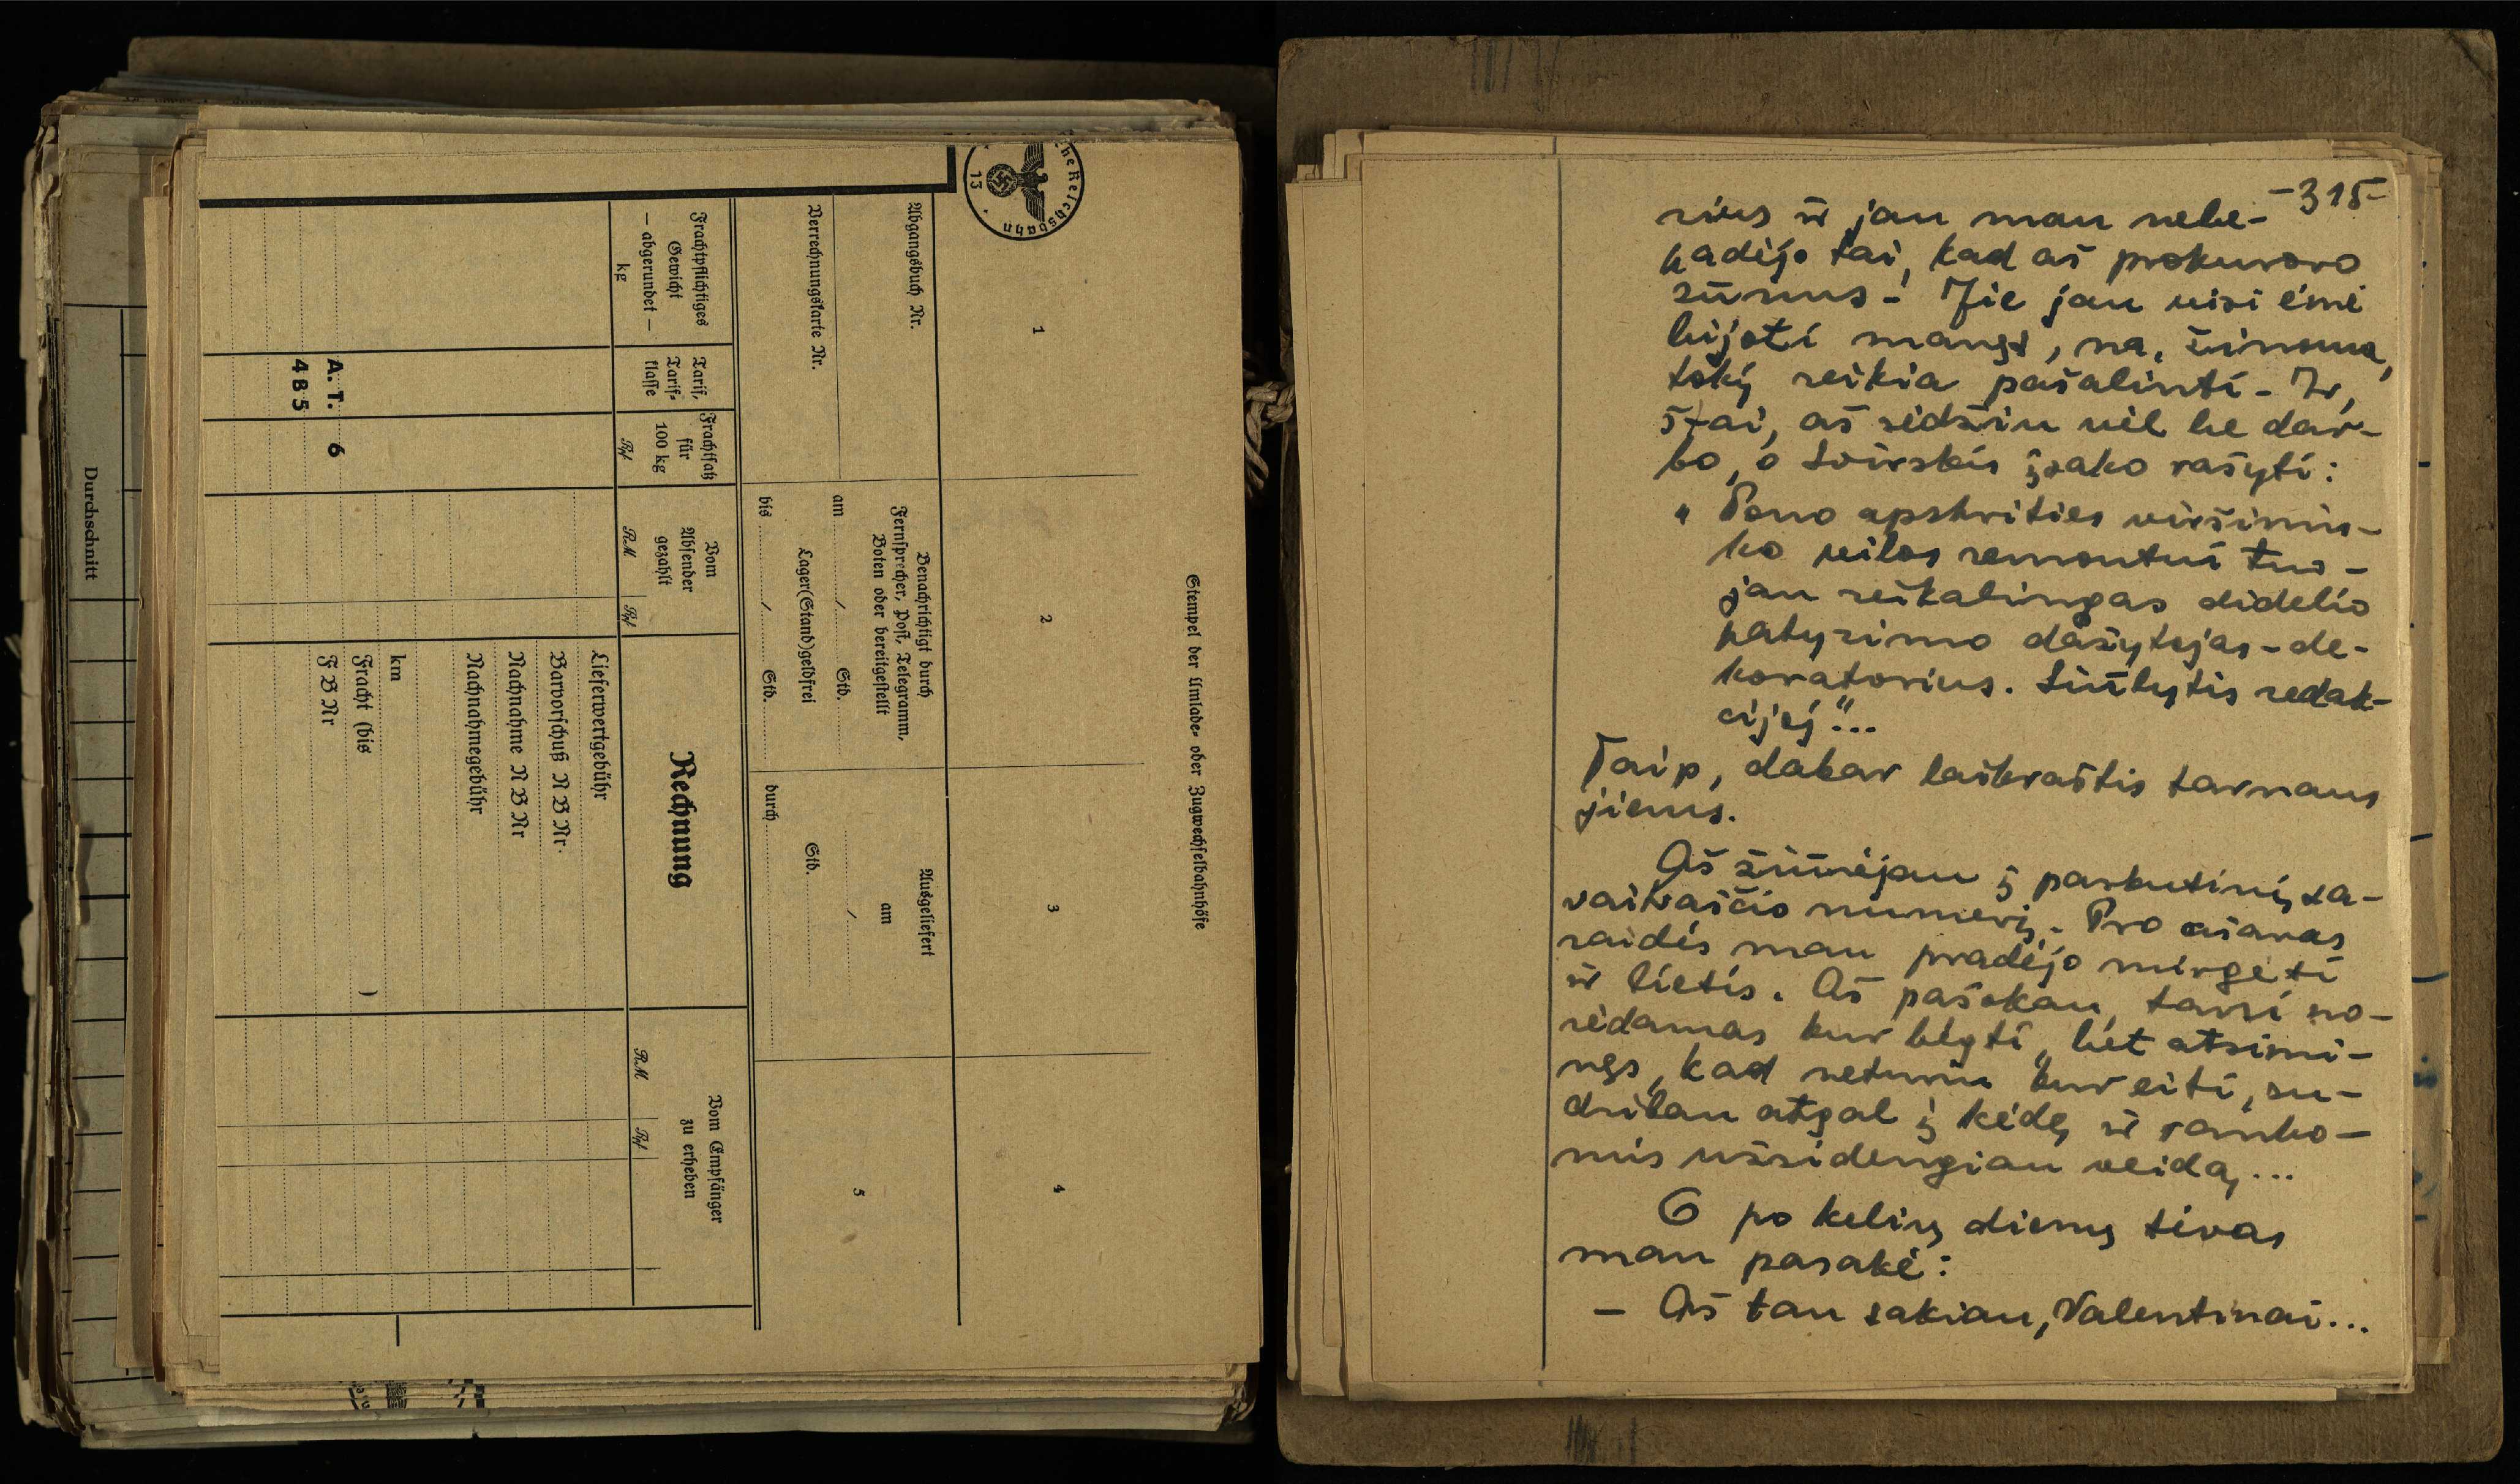 Durchschnitt
che Reichsbahn
13
Stempel der Umlade- oder Zugwechselbahnhöfe
1
2
3
4
Abgangsbuch Nr.
Verrechnungskarte Nr.
Benachrichtigt durch
Fernsprecher, Post, Telegramm,
Boten oder bereitgestellt
am / Std.
Lager(Stand)geldfrei
bis / Std.
Ausgeliefert
am
/
Std.
durch
5
Frachtpflichtiges
Gewicht
— abgerundet —
kg
Tarif,
Tarif-
klasse
Frachtsatz
für
100 kg
Rpf
Vom
Absender
gezahlt
RM
Rpf
Rechnung
Vom Empfänger
zu erheben
RM
Rpf
Lieferwertgebühr
Barvorschuß N B Nr.
Nachnahme N B Nr
Nachnahmegebühr
km
Fracht (bis )
F B Nr
A. T. 6
4 B 5
-315-
rius ir jau man nebe-
padėjo tai, kad aš prokuroro
sūnus. Jie jau visi ėmė
bijoti manęs, na, žinoma,
tokį reikia pašalinti. Ir,
štai, aš sėdžiu vėl be dar-
bo, o Svirskis įsako rašyti:
„Pono apskrities viršinin-
ko vilos remontui tuo-
jau reikalingas didelio
patyrimo dažytojas-de-
koratorius. Siūlytis redak-
cijoj“...
Taip, dabar laikraštis tarnaus
jiems.
Aš žiūrėjau į paskutinį sa-
vaitraščio numerį. Pro ašaras
raidės man pradėjo mirgėti
ir lietis. Aš pašokau, tarsi no-
rėdamas kur bėgti, bet atsimi-
nęs, kad neturiu kur eiti, su-
dribau atgal į kėdę ir ranko-
mis užsidengiau veidą...
O po kelių dienų tėvas
man pasakė:
— Aš tau sakiau, Valentinai...